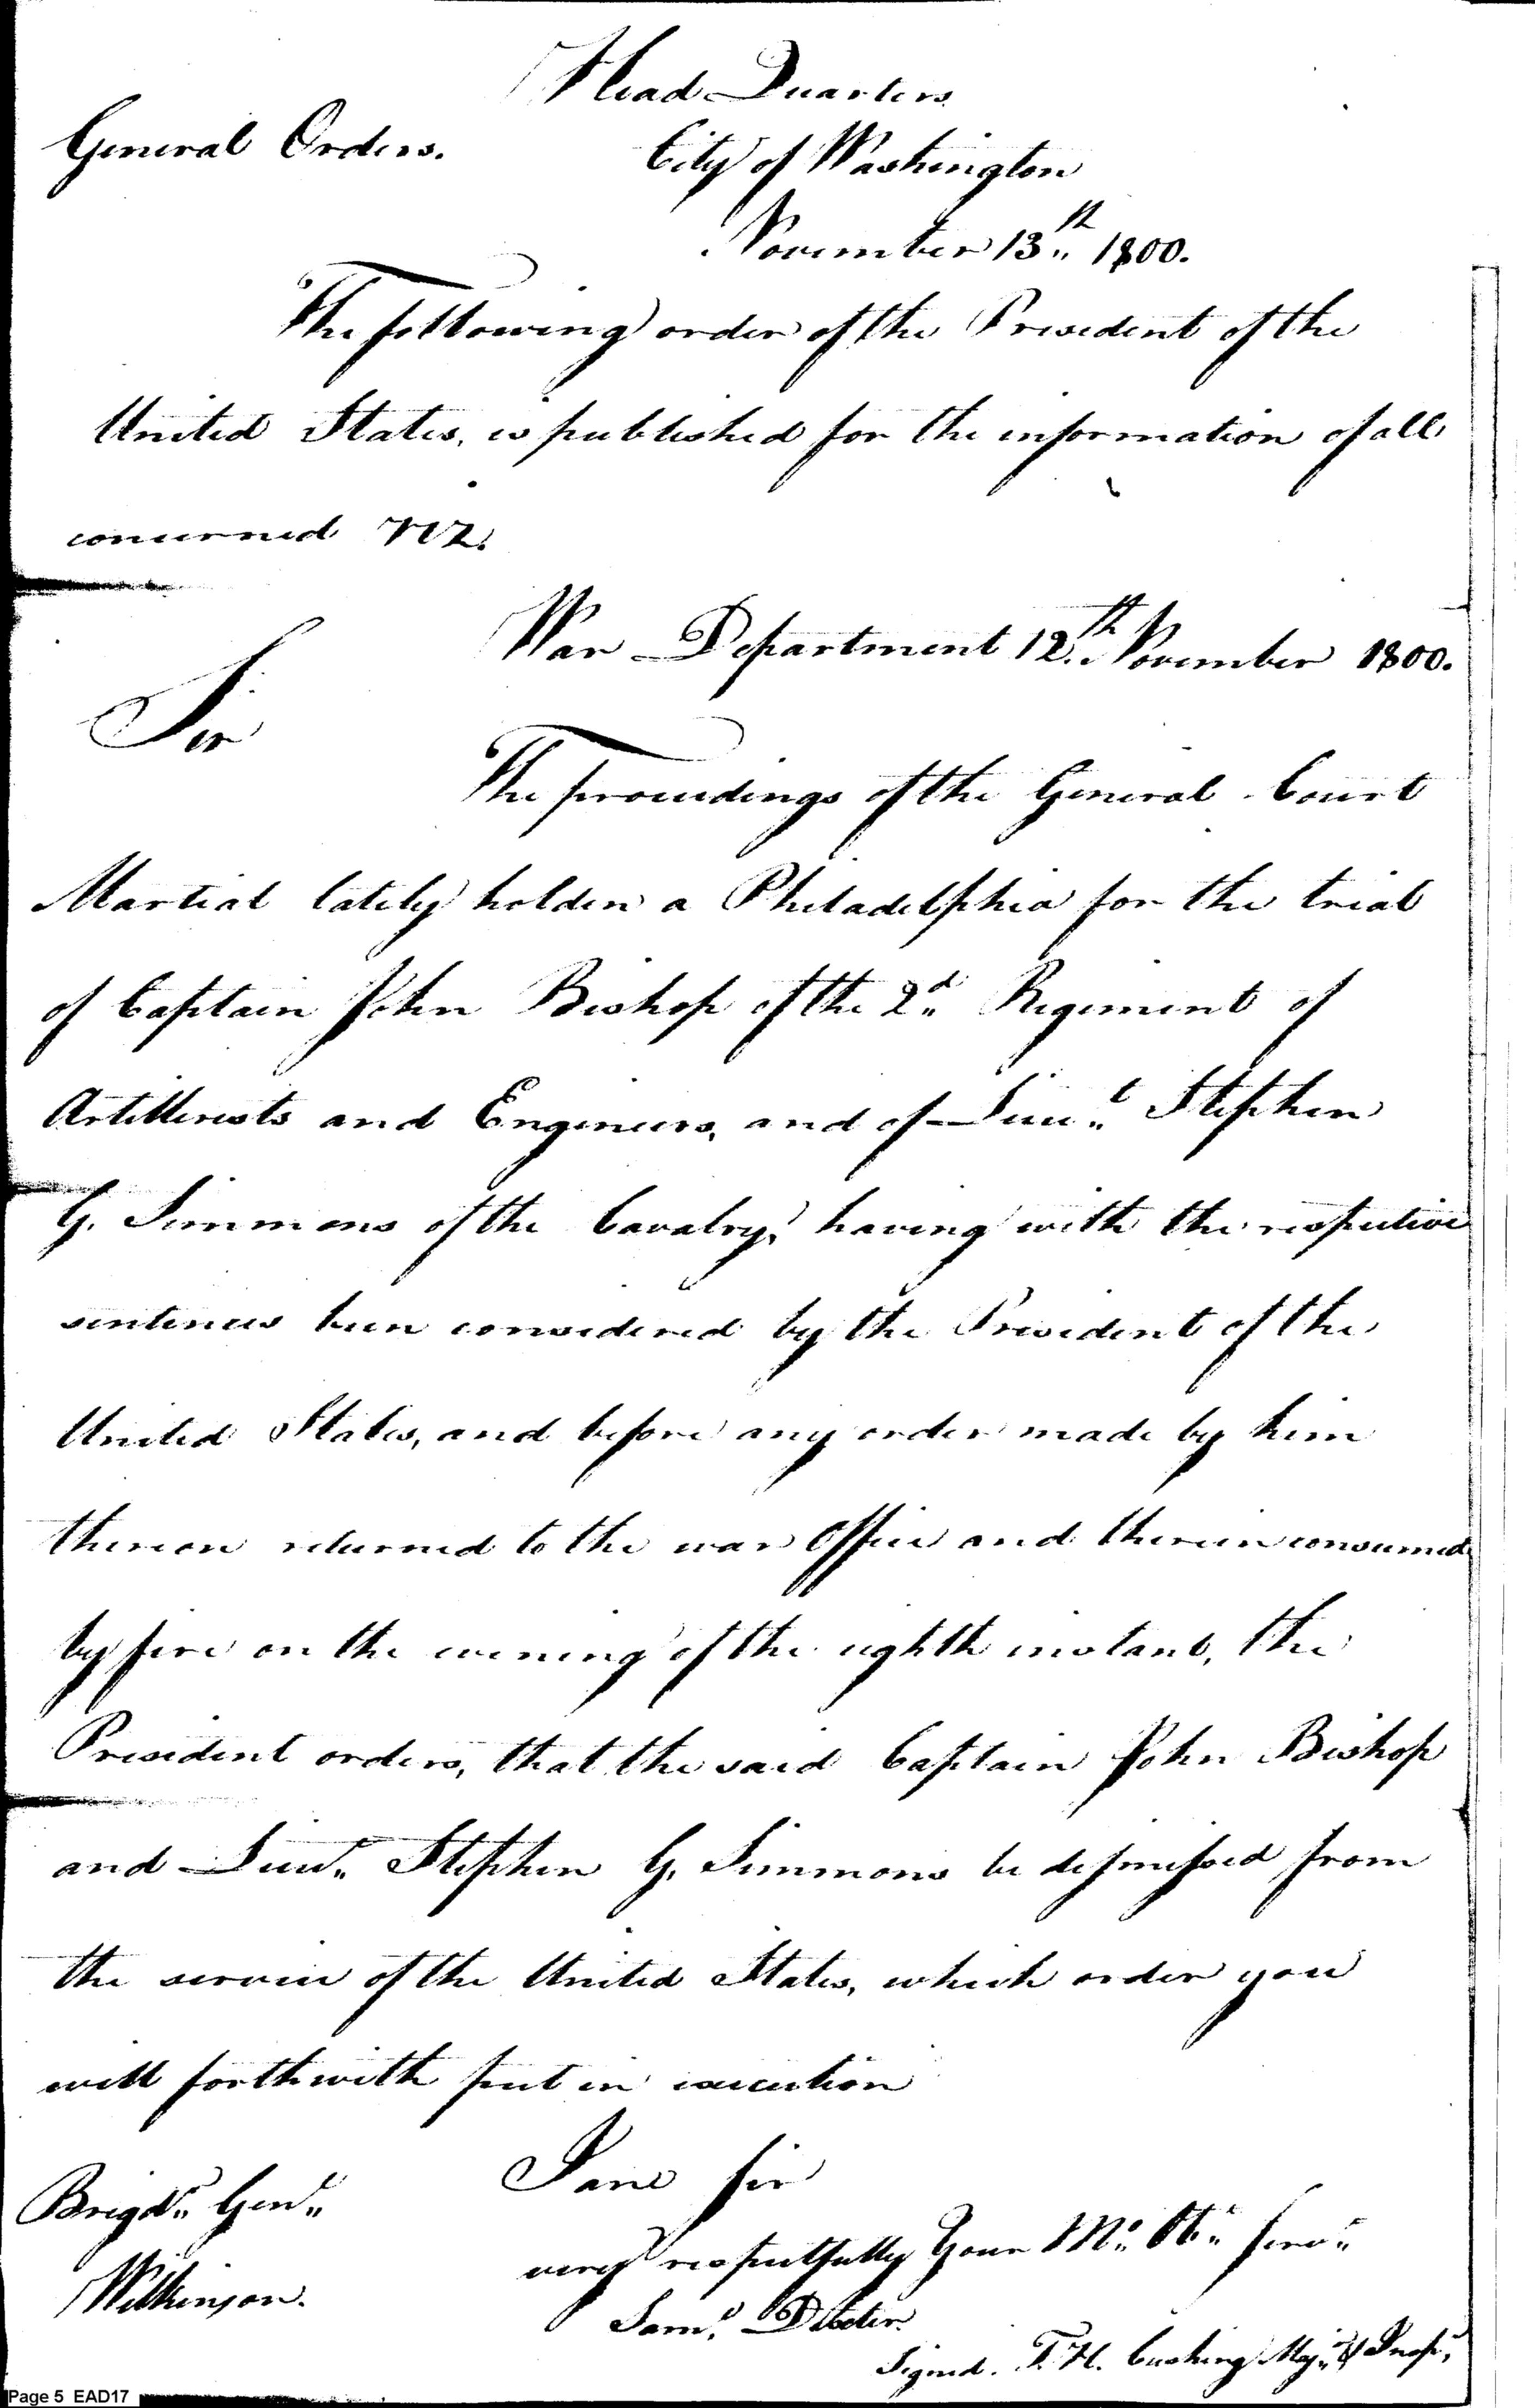 Head Quarters
General Orders. City of Washington
November 13th 1800.
The following order of the President of the
United States, is published for the information of all
concerned viz.
War Department 12.th November 1800.
Sir
The proceedings of the General Court
Martial lately holden a Philadelphia for the trial
of Captain John Bishop of the 2d Regiment of
Artillerists and Engineers, and of Lieut Stephen
G. Simmons of the Cavalry, having with the respective
sentences been considered by the President of the
United States, and before any order made by him
thereon returned to the war Office and therein consumed
by fire on the evening of the eighth instant, the
President orders, that the said Captain John Bishop
and Lieut Stephen G. Simmons be dismissed from
the service of the United States, which order you
will forthwith put in execution
I am Sir
Brigdr Genl
very respectfully Your Mo Ot Servt
Wilkinson.
Saml Dexter.
Signed. T. H. Cushing Majr & Inspr
Page 5 EAD17